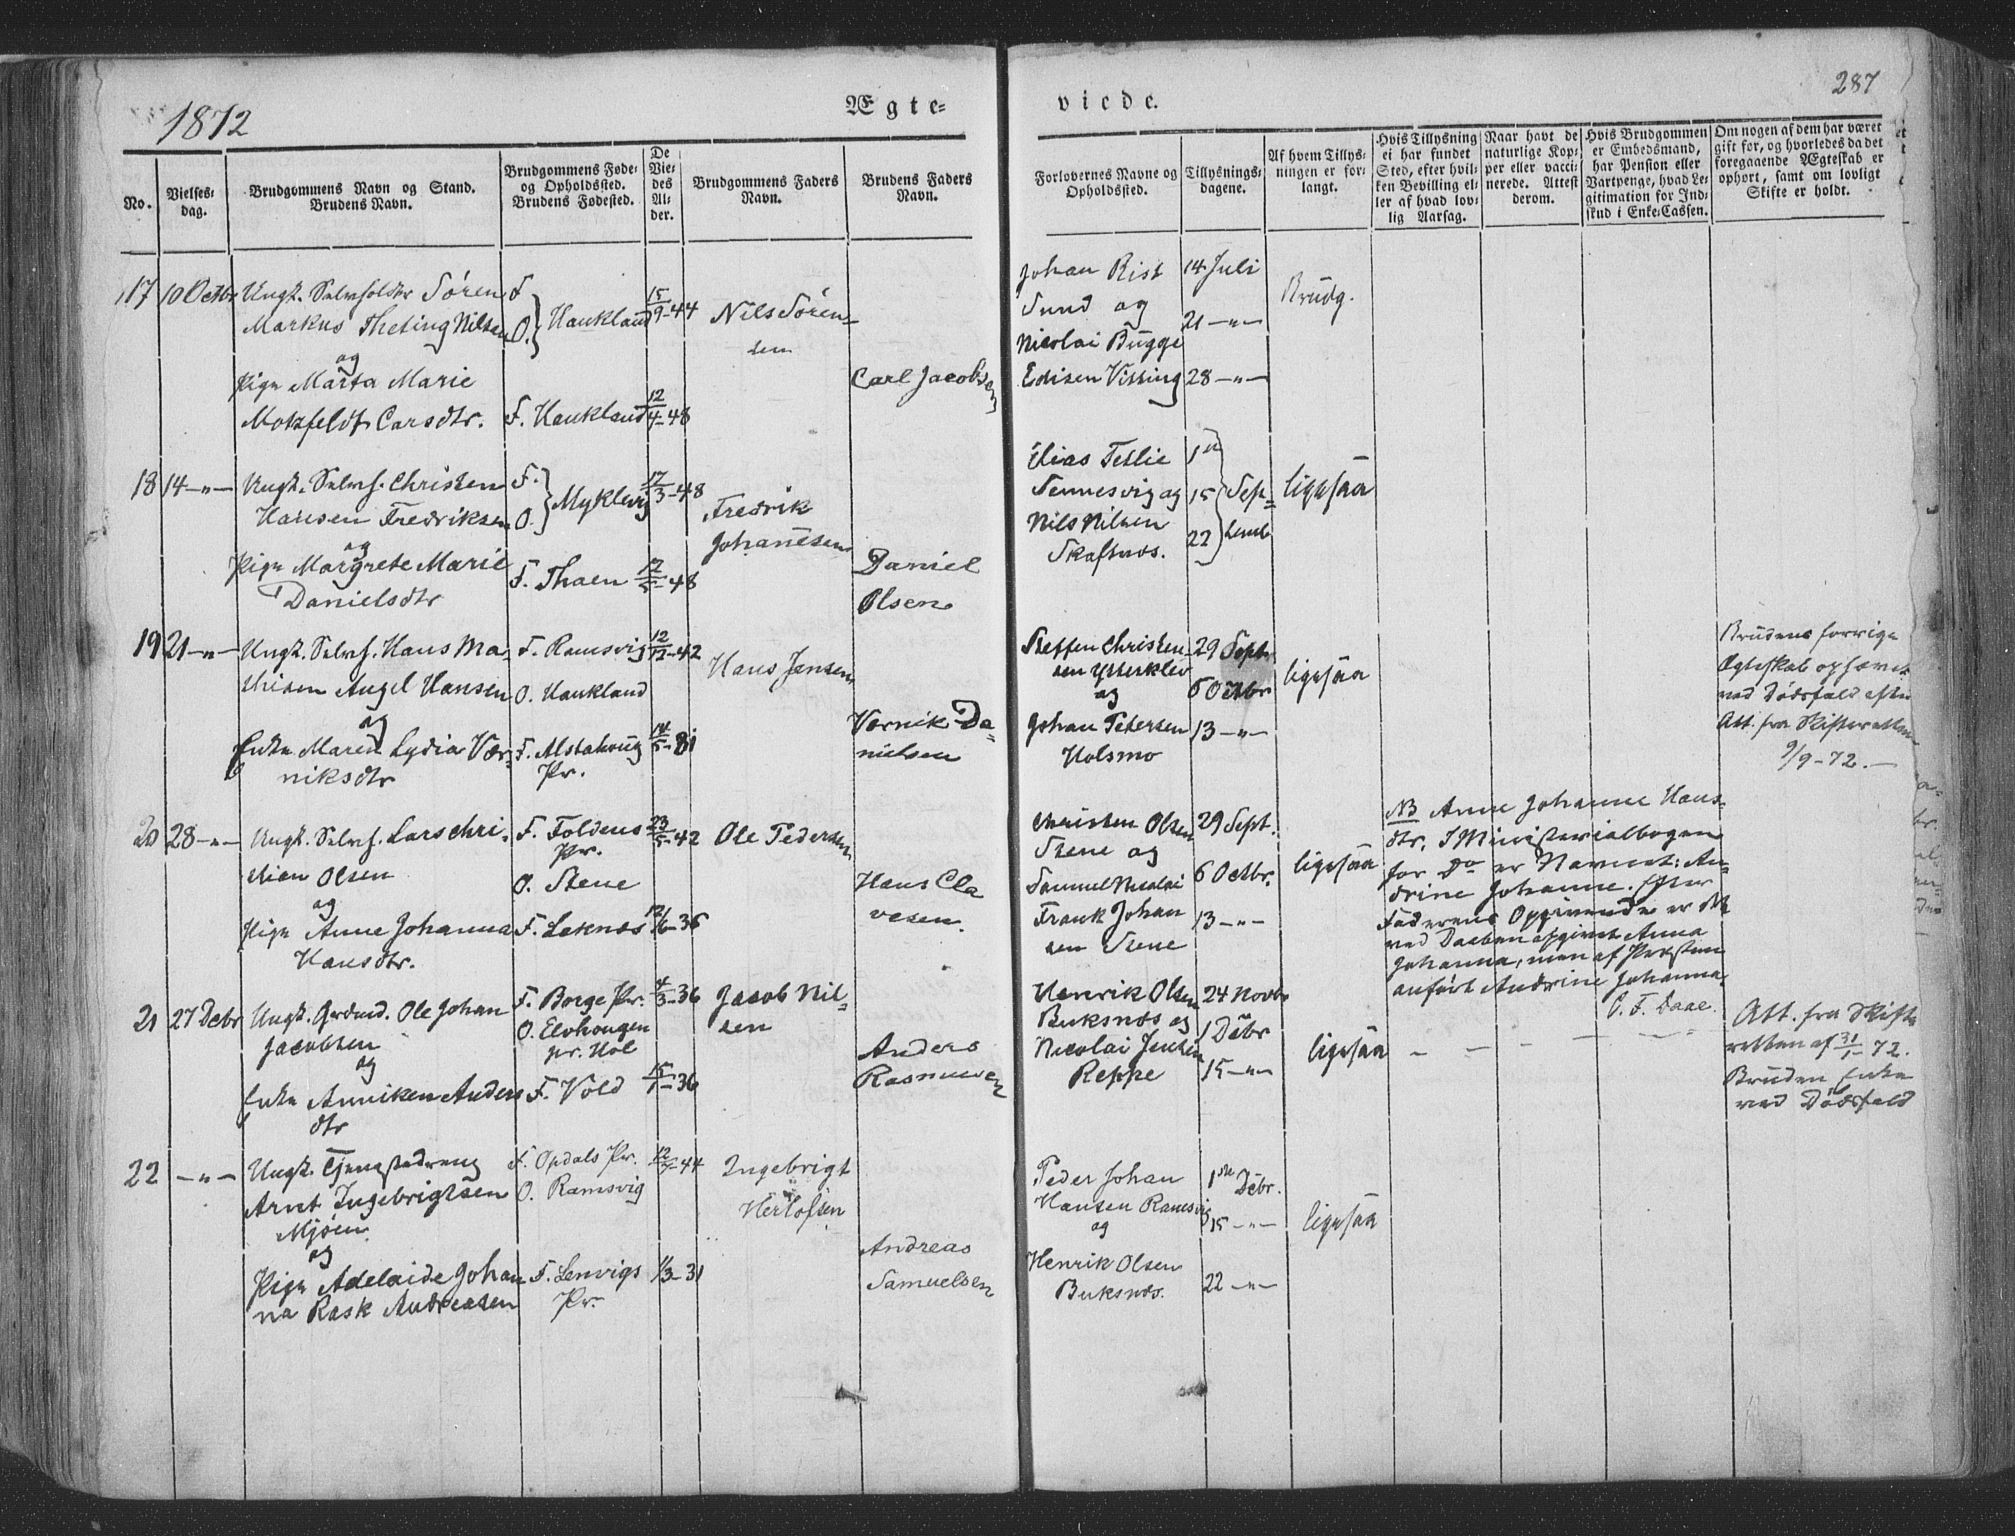 1872
Ægte=
viede.
287
No.
Vielses=
dag.
Brudgommens Navn og Stand.
Brudens Navn.
Brudgommens Føde=
og Opholdssted.
Brudens Fødested.
De
Vie=
des
Al=
der.
Brudgommens Faders
Navn.
Brudens Faders
Navn.
Forlovernes Navne og
Opholdssted.
Tillysnings=
dagene.
Af hvem Tillys=
ningen er for=
langt.
Hvis Tillysning
ei har fundet
Sted, efter hvil=
ken Bevilling el=
ler af hvad lov=
lig Aarsag.
Naar havt de
naturlige Kop=
per eller vacci=
nerede. Attest
derom.
Hvis Brudgommen
er Embedsmand,
har Pension eller
Vartpenge, hvad Le=
gitimation for Ind=
skud i Enke=Cassen.
Om nogen af dem har været
gift før, og hvorledes da det
foregaaende Ægteskab er
ophørt, samt om lovligt
Skifte er holdt.
17
10 Octbr
Ungk. Selvholdr Sören
Markus Theting Nilsen
og
Pige Marta Marie
Motzfeldt Carsdtr.
F.
O.
Haukland
F. Haukland
15/9-44
12/4-48
Nils Sören-
sen
Carl Jacobsen
Johan Rist
Sund og
Nicolai Bugge
Edisen Vitting
14 Juli
21 -"-
28 -"-
Brudg.
18
14 -"-
Ungk. Selvh. Christen
Hansen Fredriksen
og
Pige Margrete Marie
Danielsdtr
F.
O.
Myklevig
F. Thoen
17/3-48
12/5-48
Fredrik
Johannesen
Daniel
Olsen
Elias Tetlie
Sennesvig og
Nils Nilsen
Skaftnæs.
1
15
22
Sep=
temb
ligesaa
19
21 -"-
Ungk. Selvh. Hans Ma-
thisen Angel Hansen
og
Enke Maren Lydia Vær-
niksdtr
F. Ramsvig
O. Haukland
F. Alstahoug
Pr.
12/12-42
14/5-31
Hans Jensen
Værnik Da=
nielsen
Steffen Christen-
sen Ytterklev
og
Johan Petersen
Holsmo
29 Septr
6 Octbr
13 -"-
ligesaa
Brudens forrige
Ægteskab ophævet
ved Dødsfald efter
Att. fra Skifteretten
9/9-72.
20
28 -"-
Ungk. Selvh. Lars Chri-
stian Olsen
og
Pige Anne Johanna
Hansdtr.
F. Foldens
Pr.
O. Stene
F. Leknæs
23/5-42
12/6-36
Ole Pedersen
Hans Cla
vesen.
Christen Olsen
Stene og
Samuel Nicolai
Frank Johan
sen Stene
29 Sept.
6 Octbr.
13 -"-
ligesaa
NB Anne Johanne Hans-
dtr. I Ministerialbogen
for Do er Navnet: An-
drine Johanne. Efter
Faderens Opgivende er det
ved Daaben opgivet Anna
Johanna, men af Præsten
anført Andrine Johanna.
O. F. Daae.
21
27 Debr
Ungk. Grdmd. Ole Johan
Jacobsen
og
Enke Anniken Anders
dtr
F. Borge Pr.
O. Elvhougen
pr. Hol
F. Vold
4/3-36
15/1-36
Jacob Nil=
sen
Anders
Rasmussen
Henrik Olsen
Buksnæs og
Nicolai Jensen
Reppe
24 Novbr
1 Debr
15 -"-
ligesaa
Att. fra Skifte
retten af 31/1-72.
Bruden Enke
ved Dødsfald
22
-"-
Ungk. Tjenestedreng
Arnt Ingebrigtsen
Mjöen
og
Pige Adelaide Johan
na Rask Andreasen
F. Opdals Pr.
O. Ramsvig
F. Lenvigs
Pr.
1/3-31
Ingebrigt
Herlofsen
Andreas
Samuelsen
Peder Johan
Hansen Ramsvig
og
Henrik Olsen
Buksnæs.
1ste Debr.
15 -"-
22 -"-
ligesaa